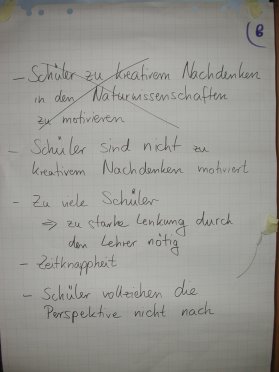 B
- Schüler zu kreativem Nachdenken
in den Naturwissenschaften
zu motivieren
- Schüler sind nicht zu
kreativem Nachdenken motiviert
- Zu viele Schüler
⇒ zu starke Lenkung durch
den Lehrer nötig
- Zeitknappheit
- Schüler vollziehen die
Perspektive nicht nach